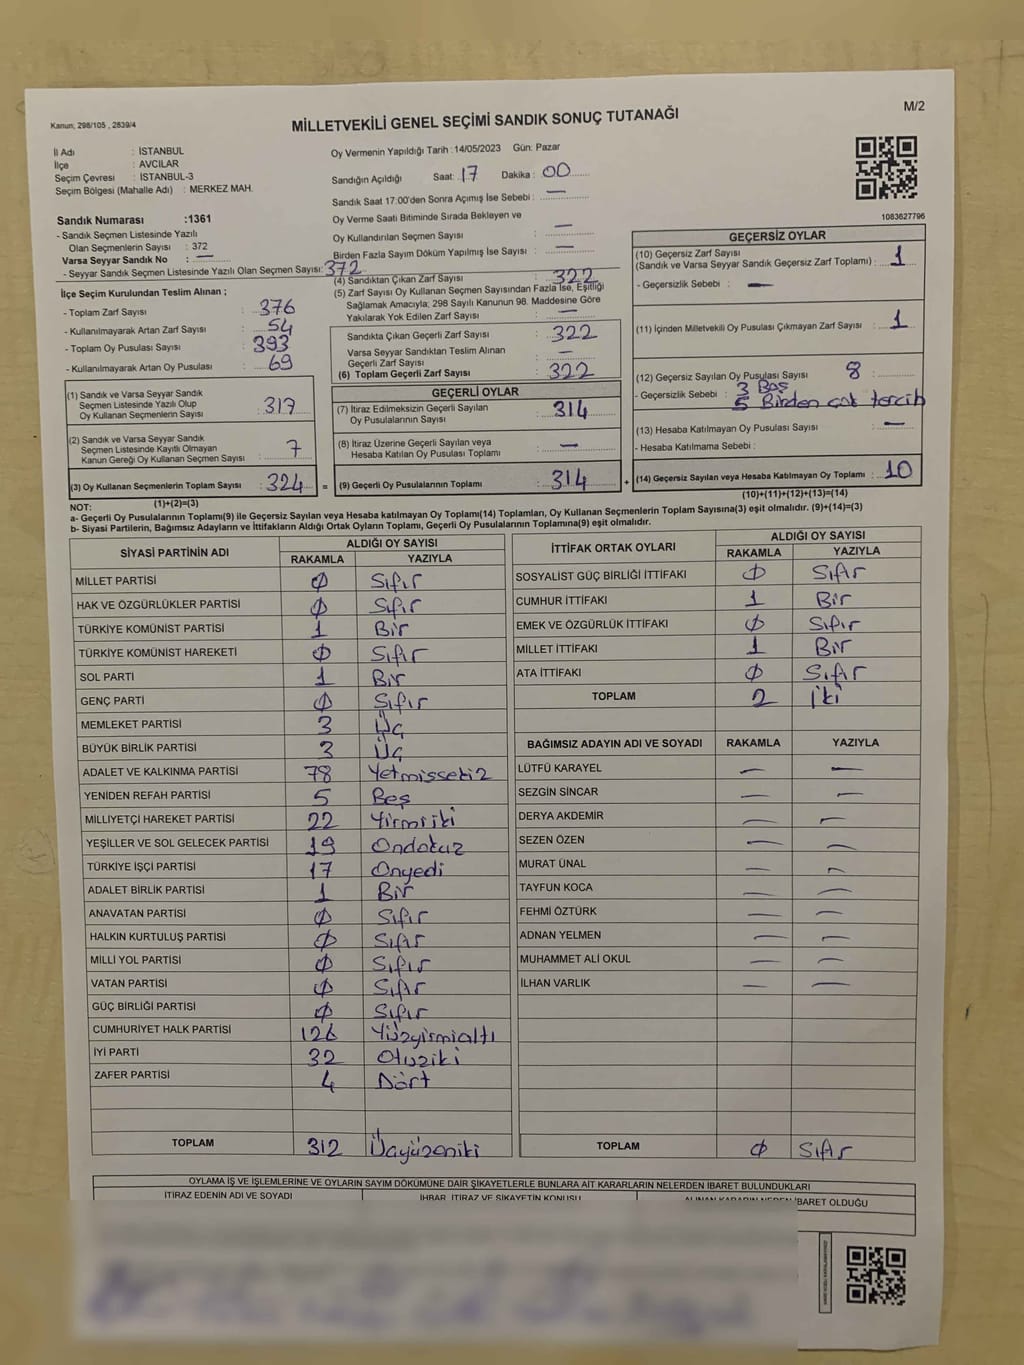 Kanun; 298/105 , 2839/4
M/2
MİLLETVEKİLİ GENEL SEÇİMİ SANDIK SONUÇ TUTANAĞI
İl Adı : İSTANBUL
İlçe : AVCILAR
Seçim Çevresi : İSTANBUL-3
Seçim Bölgesi (Mahalle Adı) : MERKEZ MAH.
Sandık Numarası :1361
- Sandık Seçmen Listesinde Yazılı
Olan Seçmenlerin Sayısı : 372
Varsa Seyyar Sandık No : —
- Seyyar Sandık Seçmen Listesinde Yazılı Olan Seçmen Sayısı: 372
İlçe Seçim Kurulundan Teslim Alınan ;
- Toplam Zarf Sayısı : 376
- Kullanılmayarak Artan Zarf Sayısı : 54
- Toplam Oy Pusulası Sayısı : 393
- Kullanılmayarak Artan Oy Pusulası : 69
(1) Sandık ve Varsa Seyyar Sandık
Seçmen Listesinde Yazılı Olup
Oy Kullanan Seçmenlerin Sayısı : 317
(2) Sandık ve Varsa Seyyar Sandık
Seçmen Listesinde Kayıtlı Olmayan
Kanun Gereği Oy Kullanan Seçmen Sayısı : 7
(3) Oy Kullanan Seçmenlerin Toplam Sayısı : 324 =
(1)+(2)=(3)
Oy Vermenin Yapıldığı Tarih :14/05/2023 Gün: Pazar
Sandığın Açıldığı Saat: 17 Dakika : 00
Sandık Saat 17:00'den Sonra Açımış İse Sebebi : —
Oy Verme Saati Bitiminde Sırada Bekleyen ve
Oy Kullandırılan Seçmen Sayısı : —
Birden Fazla Sayım Döküm Yapılmış İse Sayısı : —
(4) Sandıktan Çıkan Zarf Sayısı : 322
(5) Zarf Sayısı Oy Kullanan Seçmen Sayısından Fazla İse, Eşitliği
Sağlamak Amacıyla; 298 Sayılı Kanunun 98. Maddesine Göre
Yakılarak Yok Edilen Zarf Sayısı : —
Sandıkta Çıkan Geçerli Zarf Sayısı : 322
Varsa Seyyar Sandıktan Teslim Alınan
Geçerli Zarf Sayısı : —
(6) Toplam Geçerli Zarf Sayısı : 322
GEÇERLİ OYLAR
(7) İtiraz Edilmeksizin Geçerli Sayılan
Oy Pusulalarının Sayısı : 314
(8) İtiraz Üzerine Geçerli Sayılan veya
Hesaba Katılan Oy Pusulası Toplamı : —
(9) Geçerli Oy Pusulalarının Toplamı : 314 +
1083627796
GEÇERSİZ OYLAR
(10) Geçersiz Zarf Sayısı
(Sandık ve Varsa Seyyar Sandık Geçersiz Zarf Toplamı) : 1
- Geçersizlik Sebebi : —
(11) İçinden Milletvekili Oy Pusulası Çıkmayan Zarf Sayısı : 1
(12) Geçersiz Sayılan Oy Pusulası Sayısı 8
- Geçersizlik Sebebi : 3 Boş
5 Birden çok tercih
(13) Hesaba Katılmayan Oy Pusulası Sayısı : —
- Hesaba Katılmama Sebebi :
(14) Geçersiz Sayılan veya Hesaba Katılmayan Oy Toplamı : 10
(10)+(11)+(12)+(13)=(14)
NOT:
a- Geçerli Oy Pusulalarının Toplamı(9) ile Geçersiz Sayılan veya Hesaba katılmayan Oy Toplamı(14) Toplamları, Oy Kullanan Seçmenlerin Toplam Sayısına(3) eşit olmalıdır. (9)+(14)=(3)
b- Siyasi Partilerin, Bağımsız Adayların ve İttifakların Aldığı Ortak Oyların Toplamı, Geçerli Oy Pusulalarının Toplamına(9) eşit olmalıdır.
SİYASİ PARTİNİN ADI ALDIĞI OY SAYISI
RAKAMLA YAZIYLA
MİLLET PARTİSİ 0 Sıfır
HAK VE ÖZGÜRLÜKLER PARTİSİ 0 Sıfır
TÜRKİYE KOMÜNİST PARTİSİ 1 Bir
TÜRKİYE KOMÜNİST HAREKETİ 0 Sıfır
SOL PARTİ 1 Bir
GENÇ PARTİ 0 Sıfır
MEMLEKET PARTİSİ 3 Üç
BÜYÜK BİRLİK PARTİSİ 3 Üç
ADALET VE KALKINMA PARTİSİ 78 Yetmissekiz
YENİDEN REFAH PARTİSİ 5 Beş
MİLLİYETÇİ HAREKET PARTİSİ 22 Yirmiiki
YEŞİLLER VE SOL GELECEK PARTİSİ 19 Ondokuz
TÜRKİYE İŞÇİ PARTİSİ 17 Onyedi
ADALET BİRLİK PARTİSİ 1 Bir
ANAVATAN PARTİSİ 0 Sıfır
HALKIN KURTULUŞ PARTİSİ 0 Sıfır
MİLLİ YOL PARTİSİ 0 Sıfır
VATAN PARTİSİ 0 Sıfır
GÜÇ BİRLİĞİ PARTİSİ 0 Sıfır
CUMHURİYET HALK PARTİSİ 126 Yüzyirmialtı
İYİ PARTİ 32 Otuziki
ZAFER PARTİSİ 4 Dört
TOPLAM 312 Üçyüzoniki
İTTİFAK ORTAK OYLARI ALDIĞI OY SAYISI
RAKAMLA YAZIYLA
SOSYALİST GÜÇ BİRLİĞİ İTTİFAKI 0 Sıfır
CUMHUR İTTİFAKI 1 Bir
EMEK VE ÖZGÜRLÜK İTTİFAKI 0 Sıfır
MİLLET İTTİFAKI 1 Bir
ATA İTTİFAKI 0 Sıfır
TOPLAM 2 İki
BAĞIMSIZ ADAYIN ADI VE SOYADI RAKAMLA YAZIYLA
LÜTFÜ KARAYEL — —
SEZGİN SİNCAR — —
DERYA AKDEMİR — —
SEZEN ÖZEN — —
MURAT ÜNAL — —
TAYFUN KOCA — —
FEHMİ ÖZTÜRK — —
ADNAN YELMEN — —
MUHAMMET ALİ OKUL — —
İLHAN VARLIK — —
TOPLAM 0 Sıfır
OYLAMA İŞ VE İŞLEMLERİNE VE OYLARIN SAYIM DÖKÜMÜNE DAİR ŞİKAYETLERLE BUNLARA AİT KARARLARIN NELERDEN İBARET BULUNDUKLARI
İTİRAZ EDENİN ADI VE SOYADI İHBAR, İTİRAZ VE ŞİKAYETİN KONUSU ALINAN KARARIN NEDEN İBARET OLDUĞU